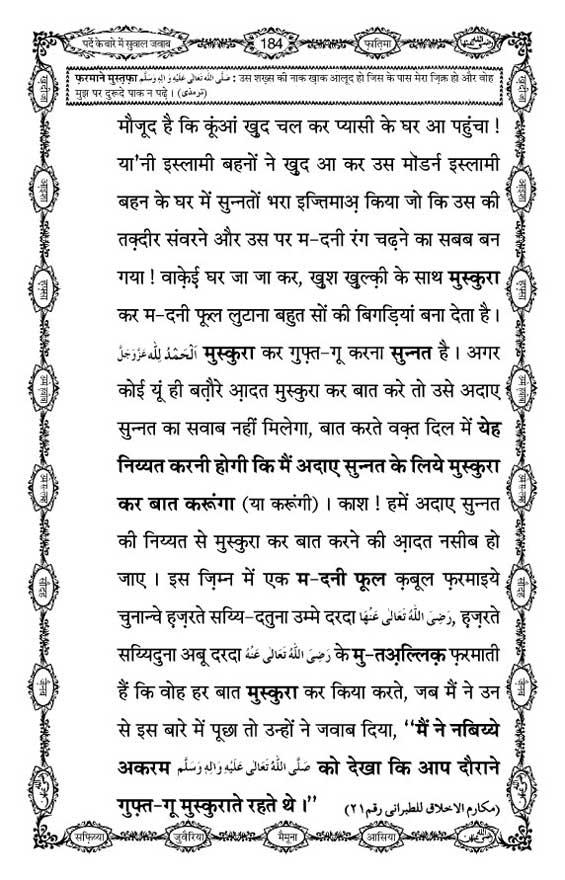 पर्दे के बारे में सुवाल जवाब
184
फ़ातिमा
फ़रमाने मुस्तफ़ा صَلَّى اللهُ تَعَالٰى عَلَيْهِ وَاٰلِهٖ وَسَلَّم : उस शख़्स की नाक ख़ाक आलूद हो जिस के पास मेरा ज़िक्र हो और वोह
मुझ पर दुरूदे पाक न पढ़े । (ترمذی)
मौजूद है कि कूंआं ख़ुद चल कर प्यासी के घर आ पहुंचा !
या'नी इस्लामी बहनों ने ख़ुद आ कर उस मॉडर्न इस्लामी
बहन के घर में सुन्नतों भरा इज्तिमाअ़ किया जो कि उस की
तक़्दीर संवरने और उस पर म-दनी रंग चढ़ने का सबब बन
गया ! वाक़ेई घर जा जा कर, ख़ुश ख़ुल्क़ी के साथ मुस्कुरा
कर म-दनी फूल लुटाना बहुत सों की बिगड़ियां बना देता है ।
اَلْحَمْدُ لِلّٰه عَزَّوَجَلَّ मुस्कुरा कर गुफ़्त-गू करना सुन्नत है । अगर
कोई यूं ही बत़ौरे आ़दत मुस्कुरा कर बात करे तो उसे अदाए
सुन्नत का सवाब नहीं मिलेगा, बात करते वक़्त दिल में येह
निय्यत करनी होगी कि मैं अदाए सुन्नत के लिये मुस्कुरा
कर बात करूंगा (या करूंगी) । काश ! हमें अदाए सुन्नत
की निय्यत से मुस्कुरा कर बात करने की आ़दत नसीब हो
जाए । इस ज़िम्न में एक म-दनी फूल क़बूल फ़रमाइये
चुनान्चे ह़ज़रते सय्यि-दतुना उम्मे दरदा رَضِیَ اللّٰهُ تَعَالٰی عَنْهَا, ह़ज़रते
सय्यिदुना अबू दरदा رَضِیَ اللّٰهُ تَعَالٰی عَنْهُ के मु-तअ़ल्लिक़ फ़रमाती
हैं कि वोह हर बात मुस्कुरा कर किया करते, जब मैं ने उन
से इस बारे में पूछा तो उन्हों ने जवाब दिया, “मैं ने नबिय्ये
अकरम صَلَّى اللّٰهُ تَعَالٰى عَلَيْهِ وَاٰلِهٖ وَسَلَّم को देखा कि आप दौराने
गुफ़्त-गू मुस्कुराते रहते थे ।” (مکارم الاخلاق للطبرانی رقم ۲۱)
सफ़िय्या
जुवैरिया
मैमूना
आसिया